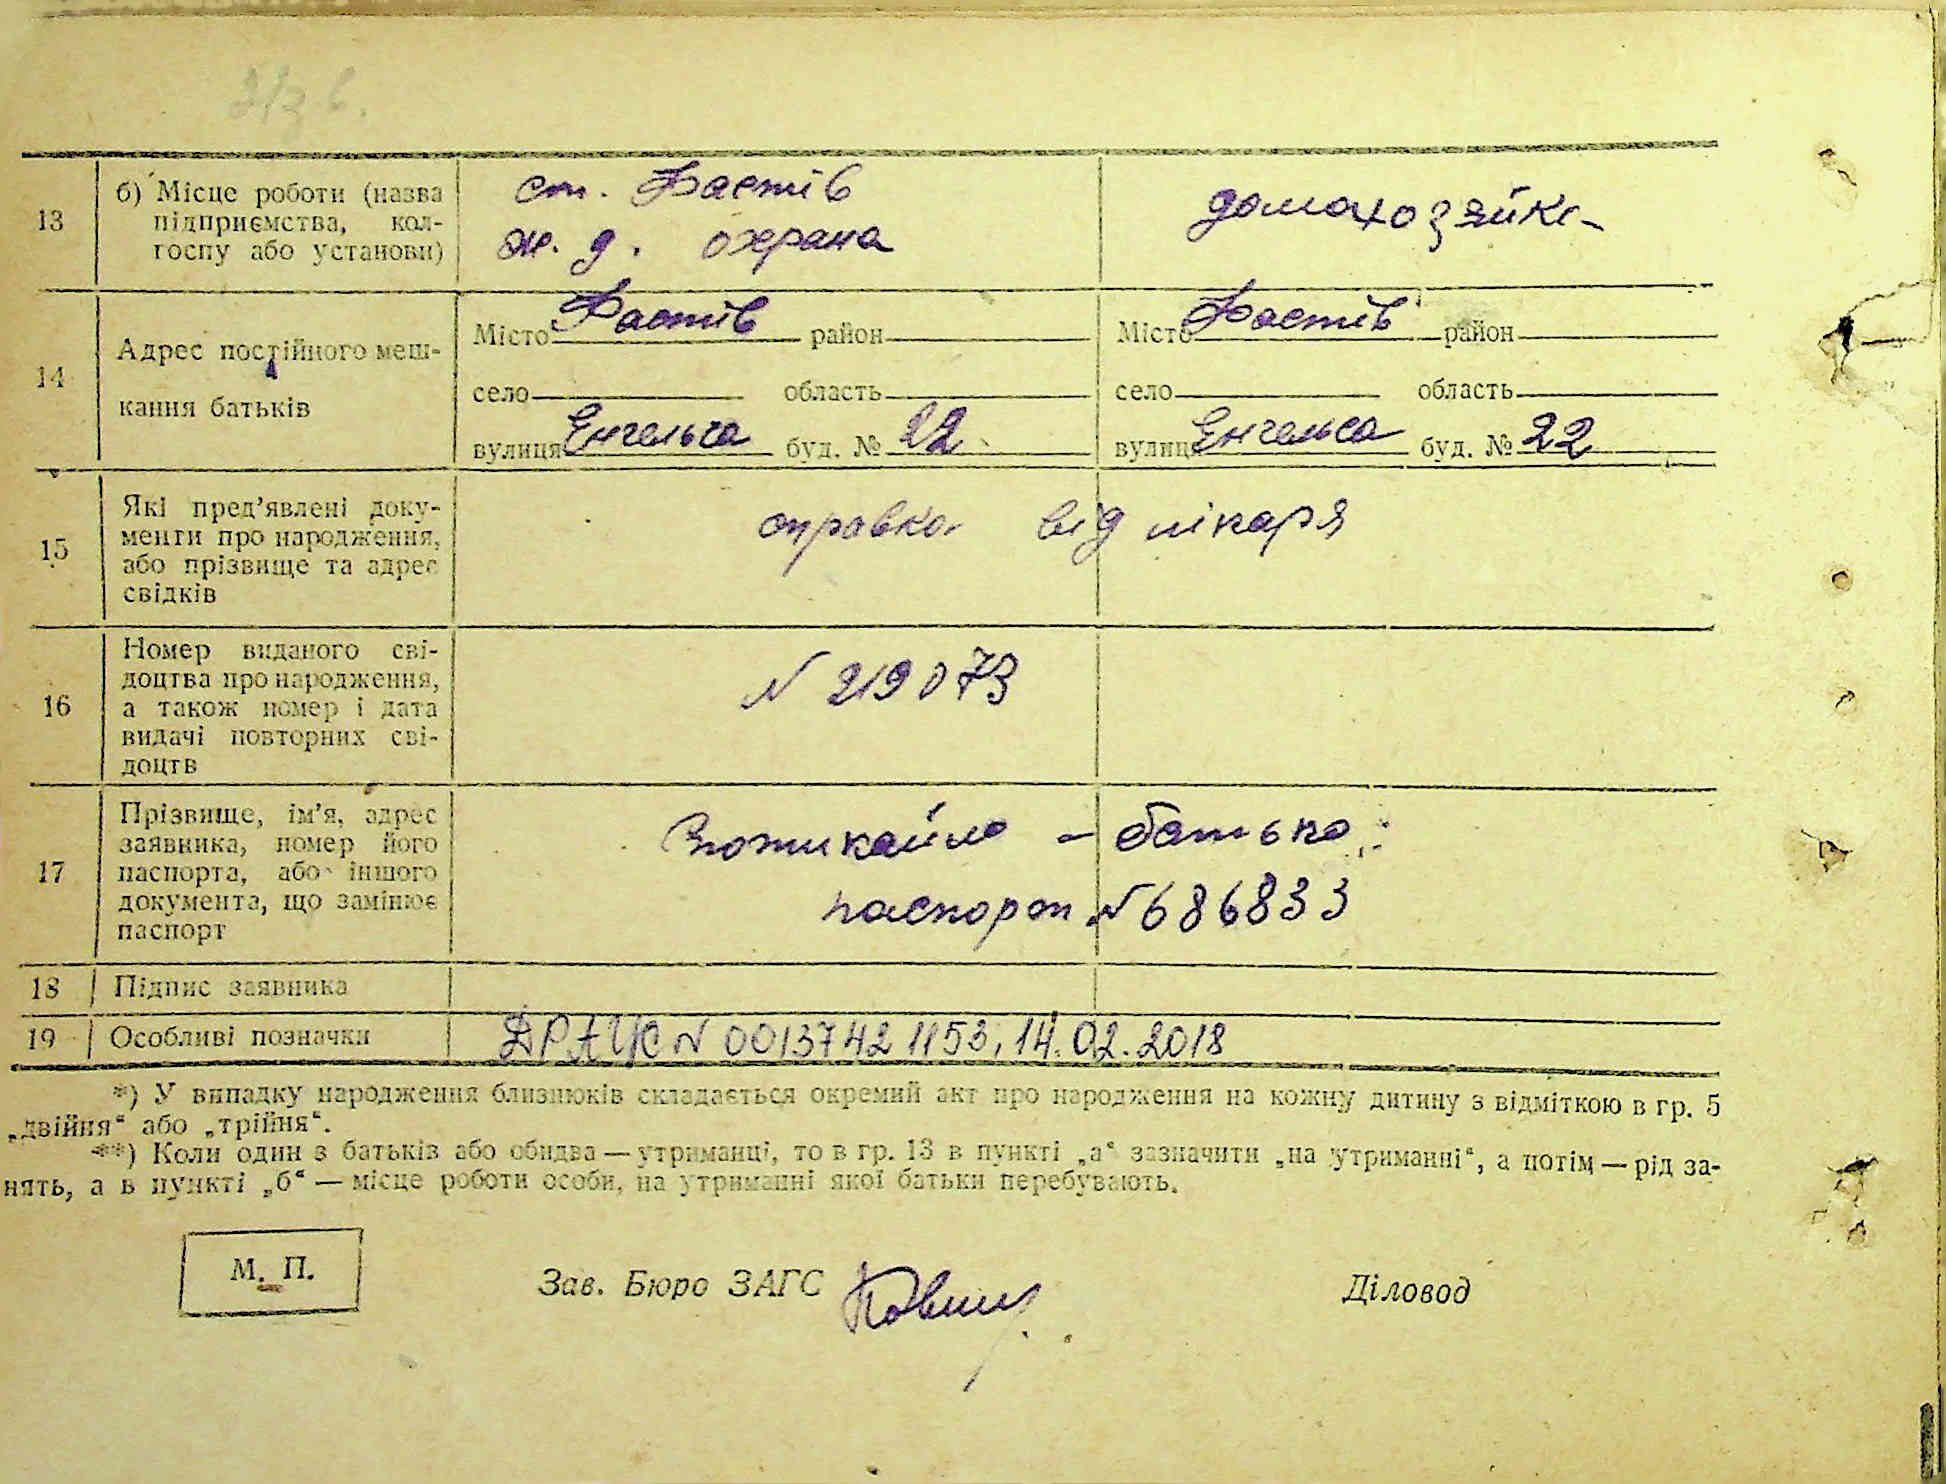 13 б) Місце роботи (назва підприємства, колгоспу або установи)
ст. Фастів
ж. д. охрана
домохозяйка
14 Адрес постійного мешкання батьків
Місто Фастів район
село область
вулиця Енгельса буд. № 22
Місто Фастів район
село область
вулиця Енгельса буд. № 22
15 Які пред'явлені документи про народження, або прізвище та адрес свідків
справка від лікаря
16 Номер виданого свідоцтва про народження, а також номер і дата видачі повторних свідоцтв
N 219073
17 Прізвище, ім'я, адрес заявника, номер його паспорта, або іншого документа, що замінює паспорт
– батько
паспорт N 686833
18 Підпис заявника
19 Особливі позначки
ДРАЦС N 00137421153, 14.02.2018
*) У випадку народження близнюків складається окремий акт про народження на кожну дитину з відміткою в гр. 5
„двійня“ або „трійня“.
**) Коли один з батьків або обидва — утриманці, то в гр. 13 в пункті „а“ зазначити „на утриманні“, а потім — рід за-
нять, а в пункті „б“ — місце роботи особи, на утриманні якої батьки перебувають.
М. П.
Зав. Бюро ЗАГС
Діловод